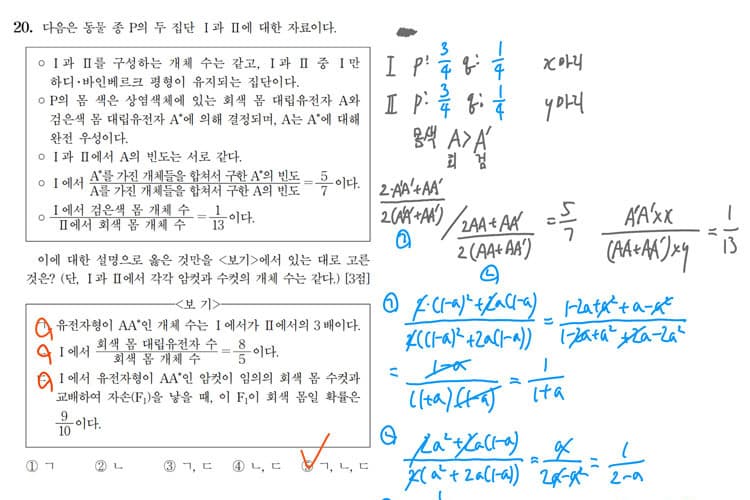 20. 다음은 동물 종 P의 두 집단 Ⅰ과 Ⅱ에 대한 자료이다.
○ Ⅰ과 Ⅱ를 구성하는 개체 수는 같고, Ⅰ과 Ⅱ 중 Ⅰ만
하디·바인베르크 평형이 유지되는 집단이다.
○ P의 몸 색은 상염색체에 있는 회색 몸 대립유전자 A와
검은색 몸 대립유전자 A*에 의해 결정되며, A는 A*에 대해
완전 우성이다.
○ Ⅰ과 Ⅱ에서 A의 빈도는 서로 같다.
○ Ⅰ에서 A*를 가진 개체들을 합쳐서 구한 A*의 빈도 / A를 가진 개체들을 합쳐서 구한 A의 빈도 = 5/7 이다.
○ Ⅰ에서 검은색 몸 개체 수 / Ⅱ에서 회색 몸 개체 수 = 1/13 이다.
이에 대한 설명으로 옳은 것만을 <보기>에서 있는 대로 고른
것은? (단, Ⅰ과 Ⅱ에서 각각 암컷과 수컷의 개체 수는 같다.) [3점]
<보 기>
ㄱ. 유전자형이 AA*인 개체 수는 Ⅰ에서가 Ⅱ에서의 3배이다.
ㄴ. Ⅰ에서 회색 몸 대립유전자 수 / 회색 몸 개체 수 = 8/5 이다.
ㄷ. Ⅰ에서 유전자형이 AA*인 암컷이 임의의 회색 몸 수컷과
교배하여 자손(F₁)을 낳을 때, 이 F₁이 회색 몸일 확률은
9/10 이다.
① ㄱ ② ㄴ ③ ㄱ, ㄷ ④ ㄴ, ㄷ ⑤ ㄱ, ㄴ, ㄷ
Ⅰ p: 3/4 q: 1/4 x마리
Ⅱ p: 3/4 q: 1/4 y마리
몸색 A>A'
회 검
2·A'A'+AA' / 2(A'A'+AA') / 2AA+AA' / 2(AA+AA') = 5/7
A'A'×x / (AA+AA')×y = 1/13
① ②
① 2·(1-a)²+2a(1-a) / 2((1-a)²+2a(1-a)) = 1-2a+a²+a-a² / 1-2a+a²+2a-2a²
= 1-a / (1+a)(1-a) = 1 / 1+a
② 2a²+2a(1-a) / 2(a²+2a(1-a)) = a / 2a-a² = 1 / 2-a